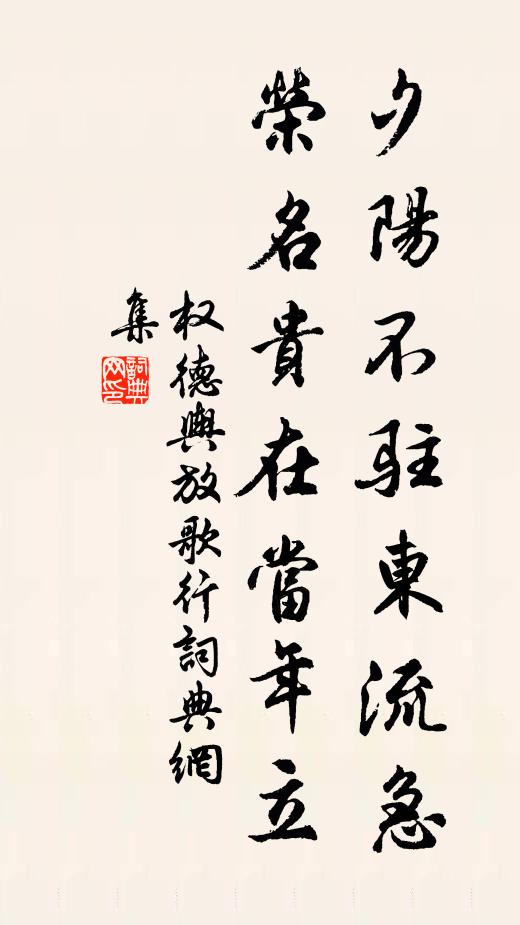 夕陽不駐東流急
榮名貴在當年立
权德輿放歌行詞典網
集
詞典
网印